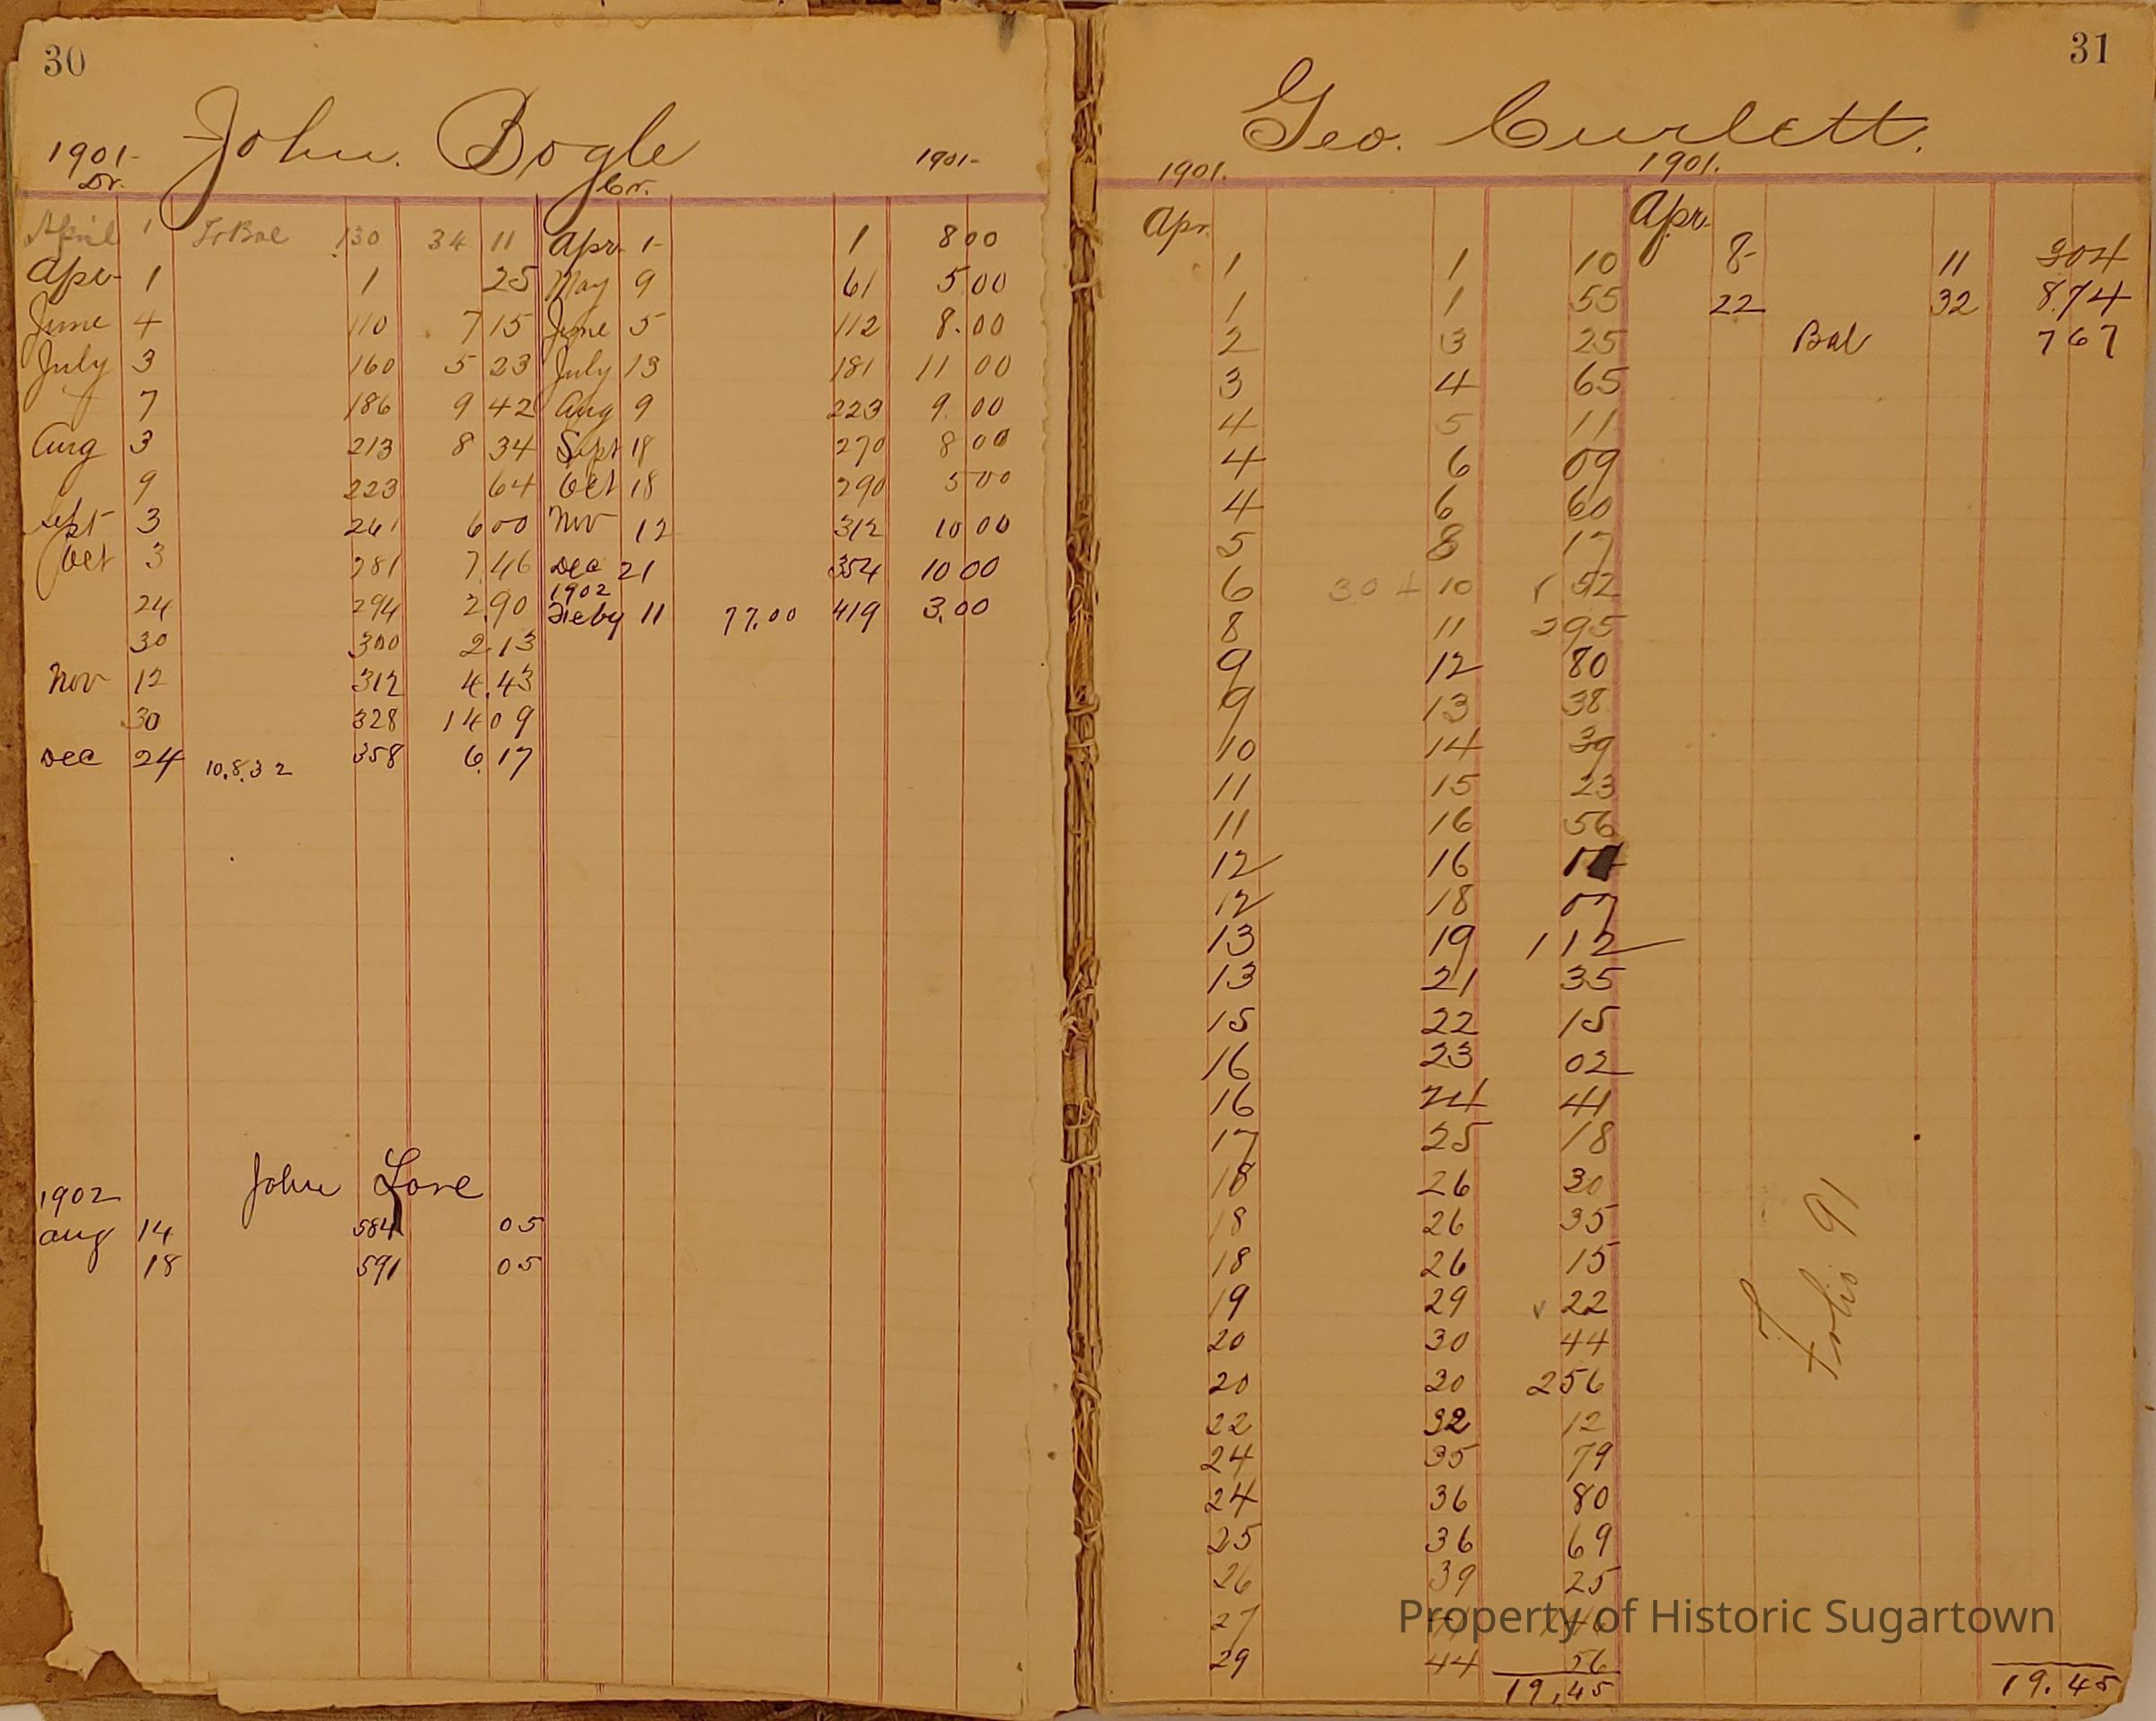 30
John. Bogle
1901- 1901-
Dr. Cr.
April 1 To Bal 130 34 11 Apr. 1- 1 8 00
Apr- 1 1 25 May 9 61 5 00
June 4 110 7 15 June 5 112 8.00
July 3 160 5 23 July 13 181 11 00
7 186 9 42 Aug 9 223 9.00
Aug 3 213 8 34 Sept 18 270 8 00
9 223 64 Oct 18 290 5 00
Sept 3 261 6 00 Nov 12 312 10 00
Oct 3 281 7.46 Dec 21 354 10 00
1902
24 294 2.90 Feby 11 77.00 419 3.00
30 300 2.13
Nov 12 312 4.43
30 328 14 09
Dec 24 10.8.32 358 6.17
John Love
1902
Aug 14 584 05
18 591 05
31
Geo. Curlett.
1901. 1901.
Apr. Apr.
1 1 10 8- 11 304
1 1 55 22 32 8.74
2 3 25 Bal 7 67
3 4 65
4 5 11
4 6 09
4 6 60
5 8 17
6 304 10 52
8 11 295
9 12 80
9 13 38
10 14 39
11 15 23
11 16 56
12 16
12 18 07
13 19 1 12
13 21 35
15 22 15
16 23 02
16 24 41
17 25 18
18 26 30
18 26 35
18 26 15
19 29 22
20 30 44
20 30 256
22 32 12
24 35 79
24 36 80
25 36 69
26 39 25
27
29 44 56
19.45 19.45
Folio 91
Property of Historic Sugartown